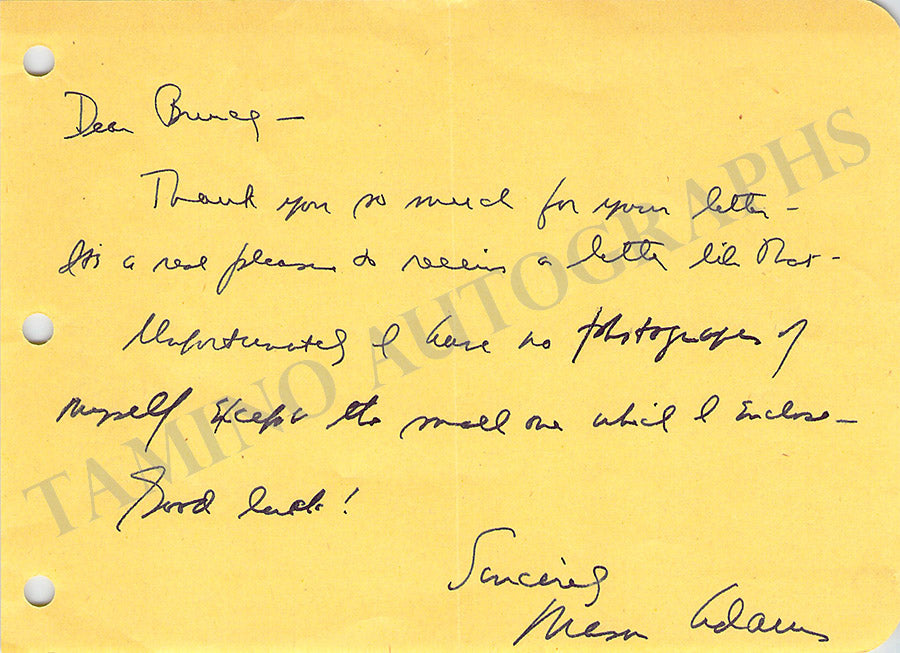 Dear Brucey –
Thank you so much for your letter –
It's a real pleasure to receive a letter like that –
Unfortunately I have no photographs of
myself except the small one which I enclose –
Good luck!
Sincerely
Mason Adams
TAMINO AUTOGRAPHS